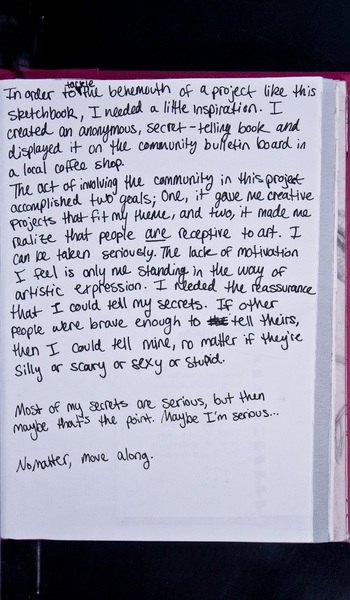 In order to tackle the behemouth of a project like this
sketchbook, I needed a little inspiration. I
created an anonymous, secret-telling book and
displayed it on the community bulletin board in
a local coffee shop.
The act of involving the community in this project
accomplished two goals; One, it gave me creative
projects that fit my theme, and two, it made me
realize that people are receptive to art. I
can be taken seriously. The lack of motivation
I feel is only me standing in the way of
artistic expression. I needed the reassurance
that I could tell my secrets. If other
people were brave enough to tell theirs,
then I could tell mine, no matter if they're
silly or scary or sexy or stupid.
Most of my secrets are serious, but then
maybe that's the point. Maybe I'm serious...
No matter, move along.